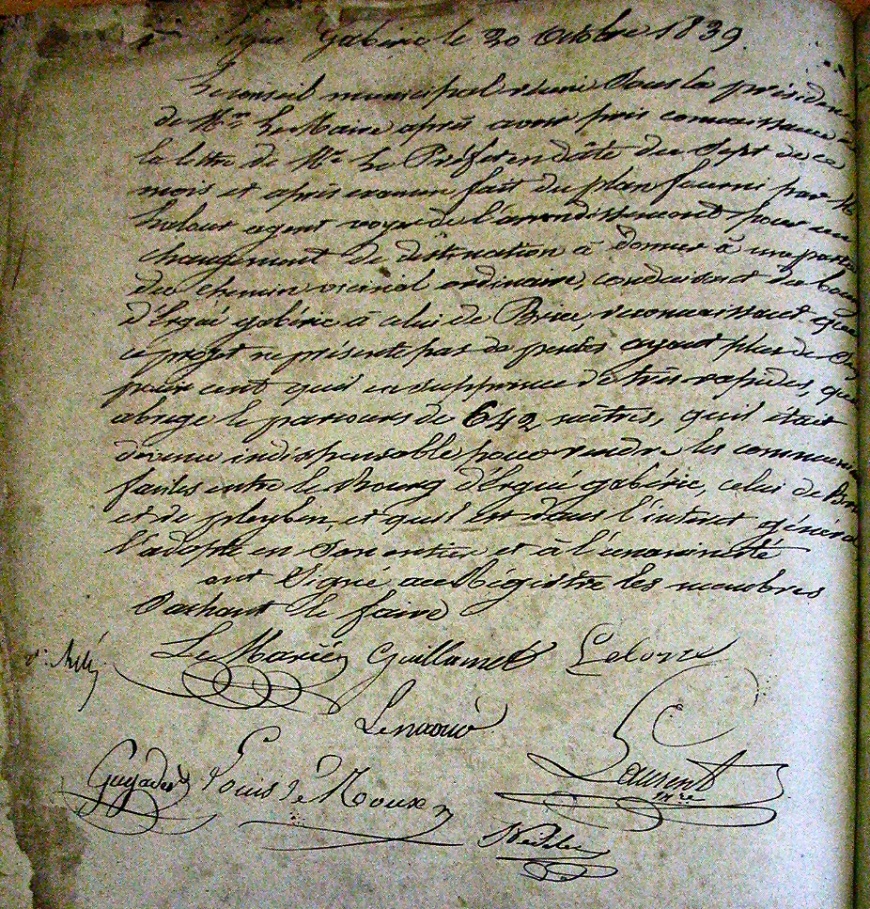 Ergué Gabéric le 20 Octobre 1839.
Le conseil municipal réuni sous la présidence
de Mr. Le Maire après avoir pris connaissance
la lettre de Mr. Le Préfet en date du Sept de ce
mois et après examen fait du plan fourni par Mr
agent voyer de l'arrondissement pour un
changement de déstination à donner à une partie
du chemin vicinal ordinaire, conduisant du bourg
d'Ergué gabéric à celui de Briec, reconnaissant que
ce projet ne présente pas de pentes ayant plus de
pour cent qu'il en supprime de très rapides, qu'il
abrege le parcours de 642 mètres, qu'il était
devenu indispensable pour rendre les communi
faciles entre le Bourg d'Ergué gabéric, celui de Briec
et de pleyben, et qu'il est dans l'interet général
l'adopte en son entier et à l'unanimité
ont Signé au Régistre les membres
Sachant le faire
Le Marié Guillamet Lelons
Lenaour
Laurent
mre
Guyader Louis Le Roux
Nédélec